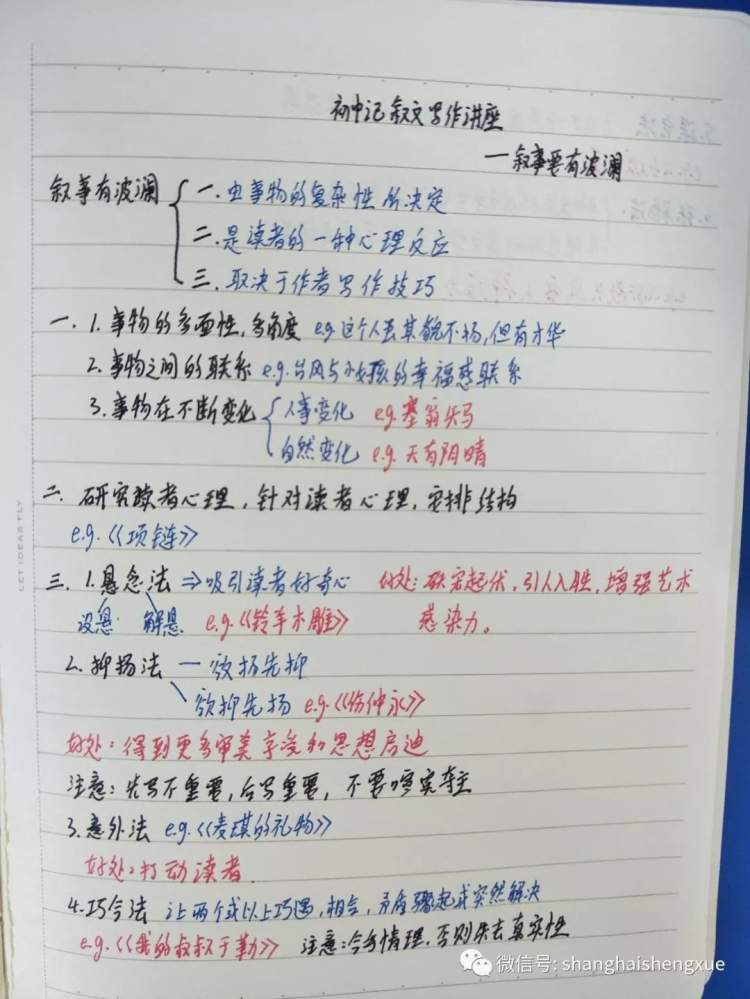 初中记叙文写作讲座
—叙事要有波澜
叙事有波澜
一.由事物的复杂性所决定
二.是读者的一种心理反应
三.取决于作者写作技巧
一.1.事物的多面性,多角度 eg这个人其貌不扬,但有才华
2.事物之间的联系 e.g.台风与小女孩的幸福感联系
3.事物在不断变化 人事变化 eg.塞翁失马
自然变化 e.g.天有阴晴
二.研究读者心理,针对读者心理,安排结构
e.g.《项链》
三.1.悬念法⇒吸引读者好奇心 好处:跌宕起伏,引人入胜,增强艺术
设悬 解悬 e.g.《羚羊木雕》 感染力。
2.抑扬法 — 欲扬先抑
欲抑先扬 e.g.《伤仲永》
好处:得到更多审美享受和思想启迪
注意:先写不重要,后写重要,不要喧宾夺主
3.意外法 e.g.《麦琪的礼物》
好处:打动读者.
4.巧合法 让两个或以上巧遇,相合,矛盾骤起或突然解决
e.g.《我的叔叔于勒》 注意:合乎情理,否则失去真实性
LET IDEAS FLY
微信号: shanghaishengxue